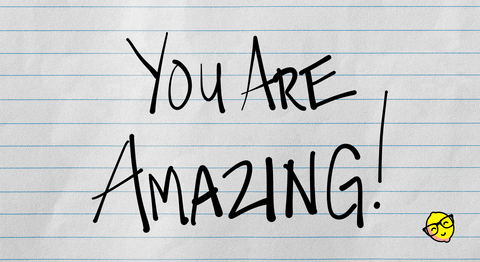 YOU ARE
AMAZING!